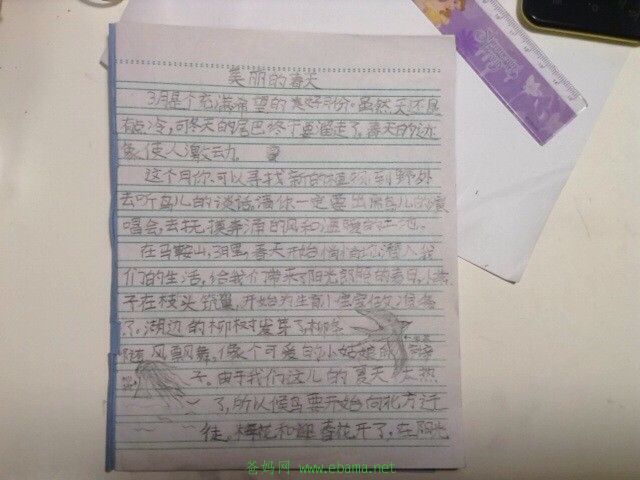 美丽的春天
3月是个充满希望的美好月份。虽然天还是
有点冷,可冬天的尾巴终于要溜走了,春天的迹
象使人激动。
这个月你可以寻找新的植物,到野外
去听鸟儿的谈话,请你一定要出席鸟儿的演
唱会,去抚摸奔涌的风和温暖的土地。
在马鞍山,3月里,春天开始悄悄地潜入我
们的生活,给我们带来了阳光明媚的春日。小燕
子在枝头筑巢,开始为生育小宝宝做准备
了。湖边的柳树发芽了,柳条
随风飘舞。像个可爱的小姑娘的
子。由于我们这儿的夏天太热
了,所以候鸟要开始向北方迁
徙。梅花和迎春花开了,在阳光
爸妈网 www.ebama.net